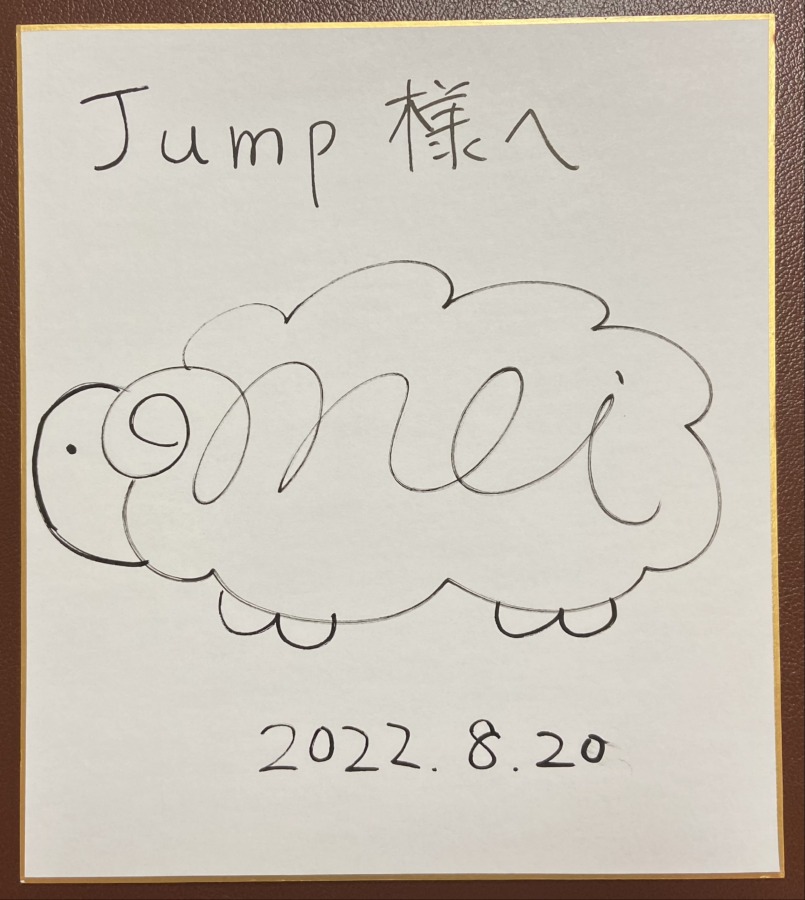 Jump 様へ
mei
2022.8.20